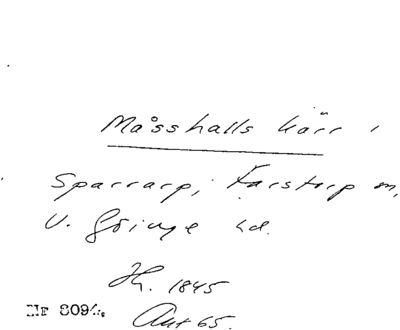 Måsshalls kärr i
Sparrarp, Farstorp sn,
V. Göinge hd.
Hn. 1845
Nr 8094.
Aut 65.